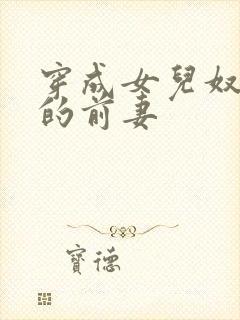 穿成女兒奴
的前妻
寶德